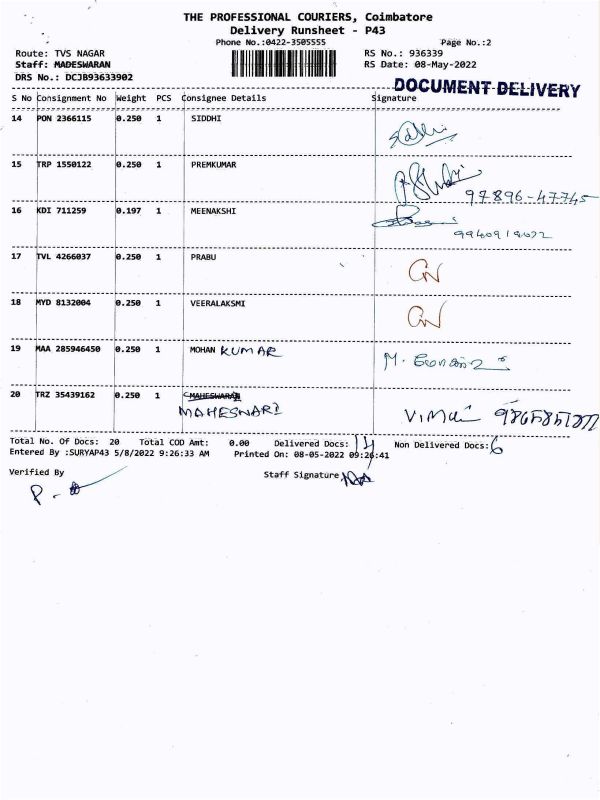 THE PROFESSIONAL COURIERS, Coimbatore
Delivery Runsheet - P43
Phone No.:0422-3505555 Page No.:2
Route: TVS NAGAR RS No.: 936339
Staff: MADESWARAN RS Date: 08-May-2022
DRS No.: DCJB93633902
DOCUMENT DELIVERY
S No Consignment No Weight PCS Consignee Details Signature
14 PON 2366115 0.250 1 SIDDHI
15 TRP 1550122 0.250 1 PREMKUMAR
97896-47745
16 KDI 711259 0.197 1 MEENAKSHI
17 TVL 4266037 0.250 1 PRABU
18 MYD 8132004 0.250 1 VEERALAKSMI
19 MAA 285946450 0.250 1 MOHAN KUMAR
20 TRZ 35439162 0.250 1 MAHESWARAN
MAHESWARI
Total No. Of Docs: 20 Total COD Amt: 0.00 Delivered Docs: 14 Non Delivered Docs: 6
Entered By :SURYAP43 5/8/2022 9:26:33 AM Printed On: 08-05-2022 09:26:41
Verified By Staff Signature